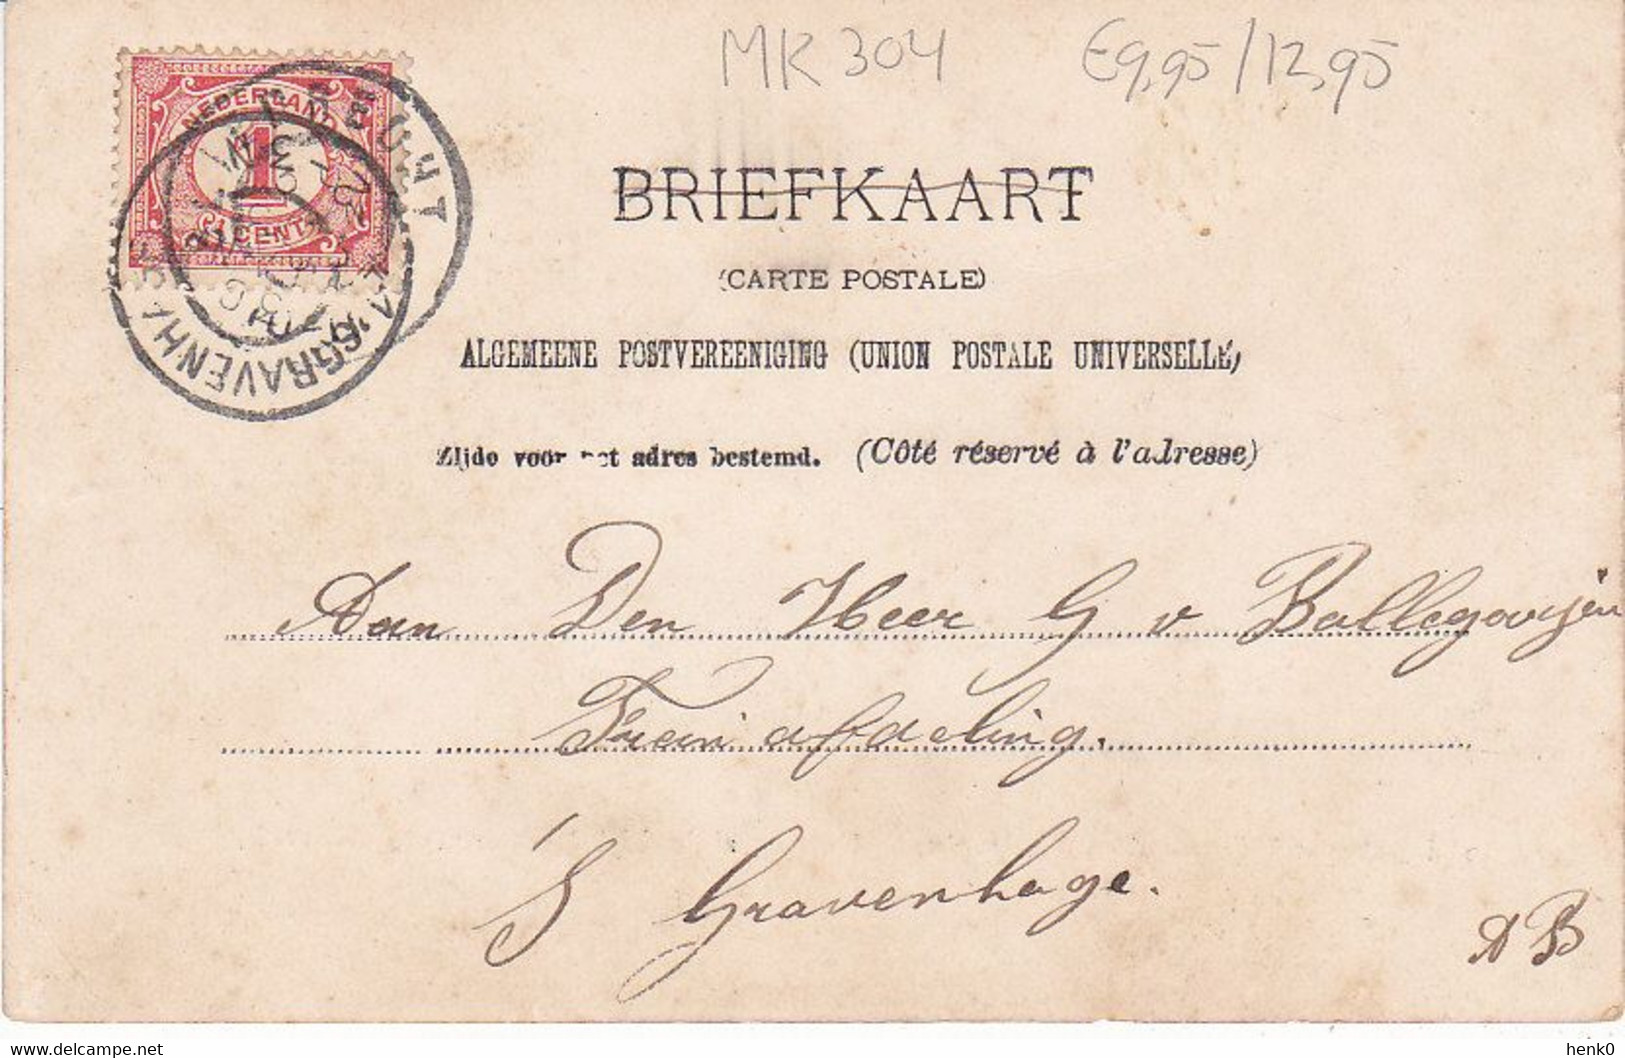 MK 304 €9,95/12,95
NEDERLAND
1
CENT
'S GRAVENHAGE
BRIEFKAART
(CARTE POSTALE)
ALGEMEENE POSTVEREENIGING (UNION POSTALE UNIVERSELLE)
Zijde voor het adres bestemd. (Côté réservé à l'adresse)
Aan Den Heer G v Ballegooijen
afdeling.
'S Gravenhage.
AB
www.delcampe.net
henk0